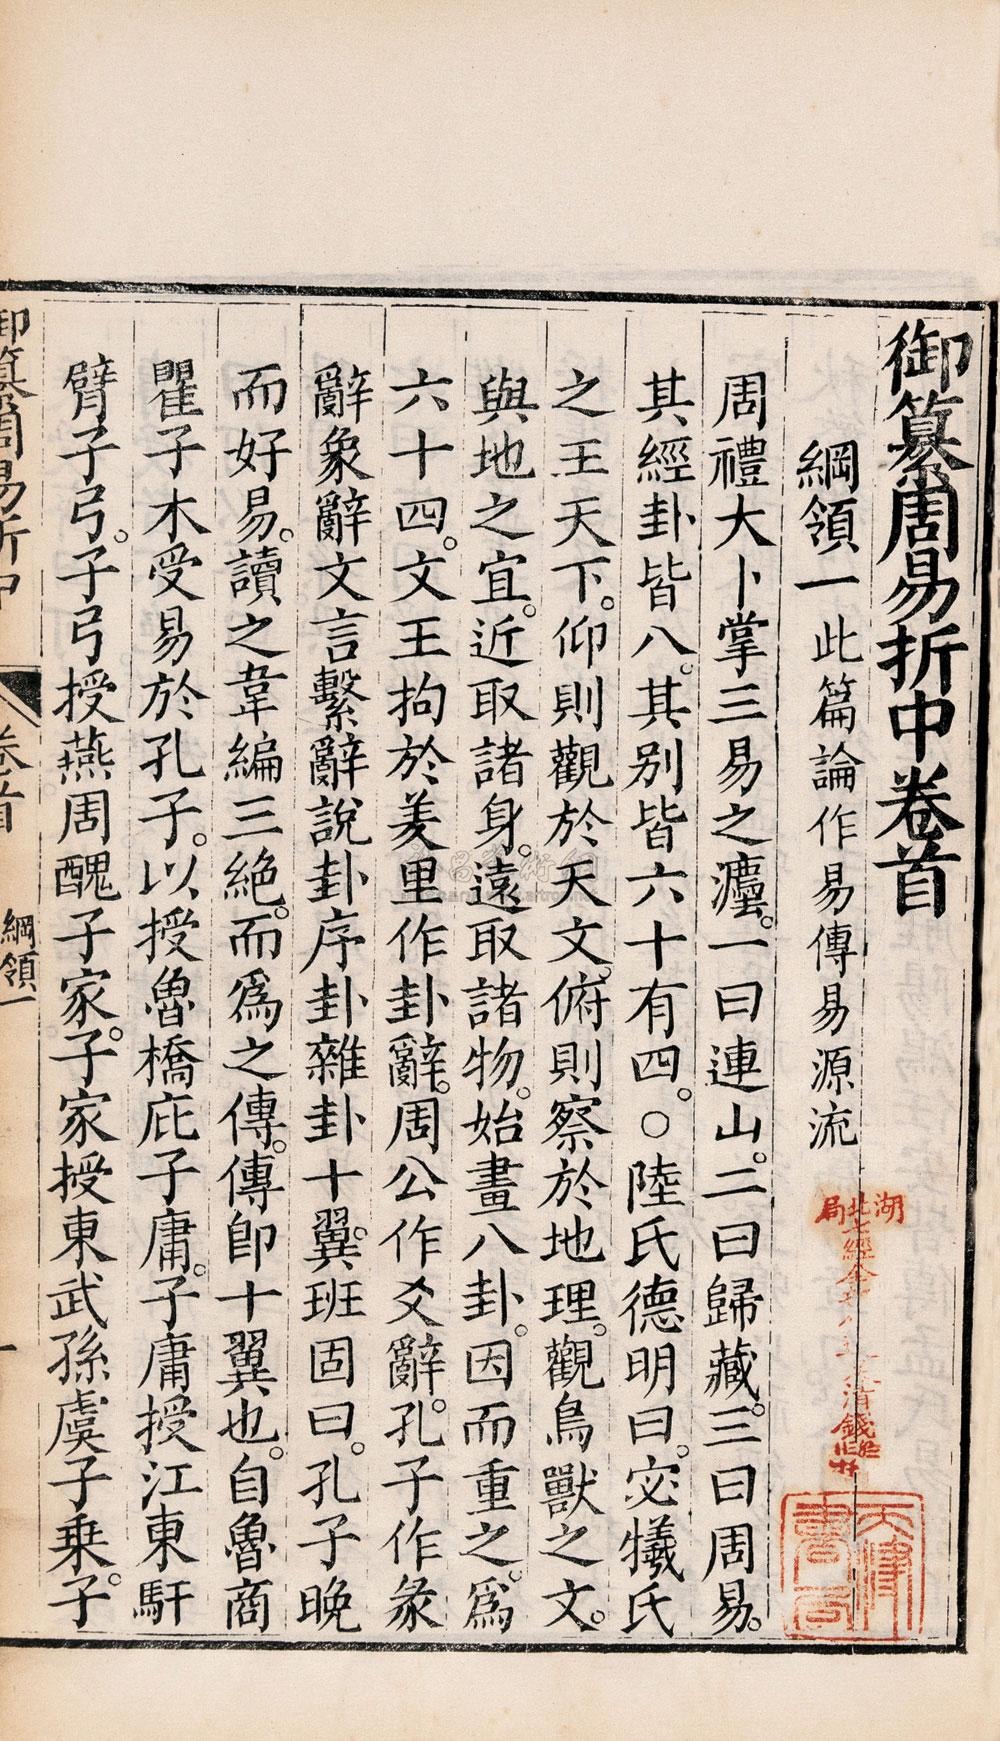 御纂周易折中卷首
綱領一此篇論作易傳易源流
周禮大卜掌三易之灋。一曰連山。二曰歸藏。三曰周易。
其經卦皆八。其别皆六十有四。○陸氏德明曰。宓犧氏
之王天下。仰則觀於天文。俯則察於地理。觀鳥獸之文。
與地之宜。近取諸身。遠取諸物。始畫八卦。因而重之。爲
六十四。文王拘於羑里作卦辭。周公作爻辭。孔子作彖
辭象辭文言繫辭說卦序卦雜卦十翼班固曰。孔子晚
而好易。讀之韋編三絶。而爲之傳。傳卽十翼也。自魯商
瞿子木受易於孔子。以授魯橋庇子庸。子庸授江東馯
臂子弓。子弓授燕周醜子家。子家授東武孫虞子乗。子
御纂周易折中
卷首
綱領一
一
湖北
局
天津
書局